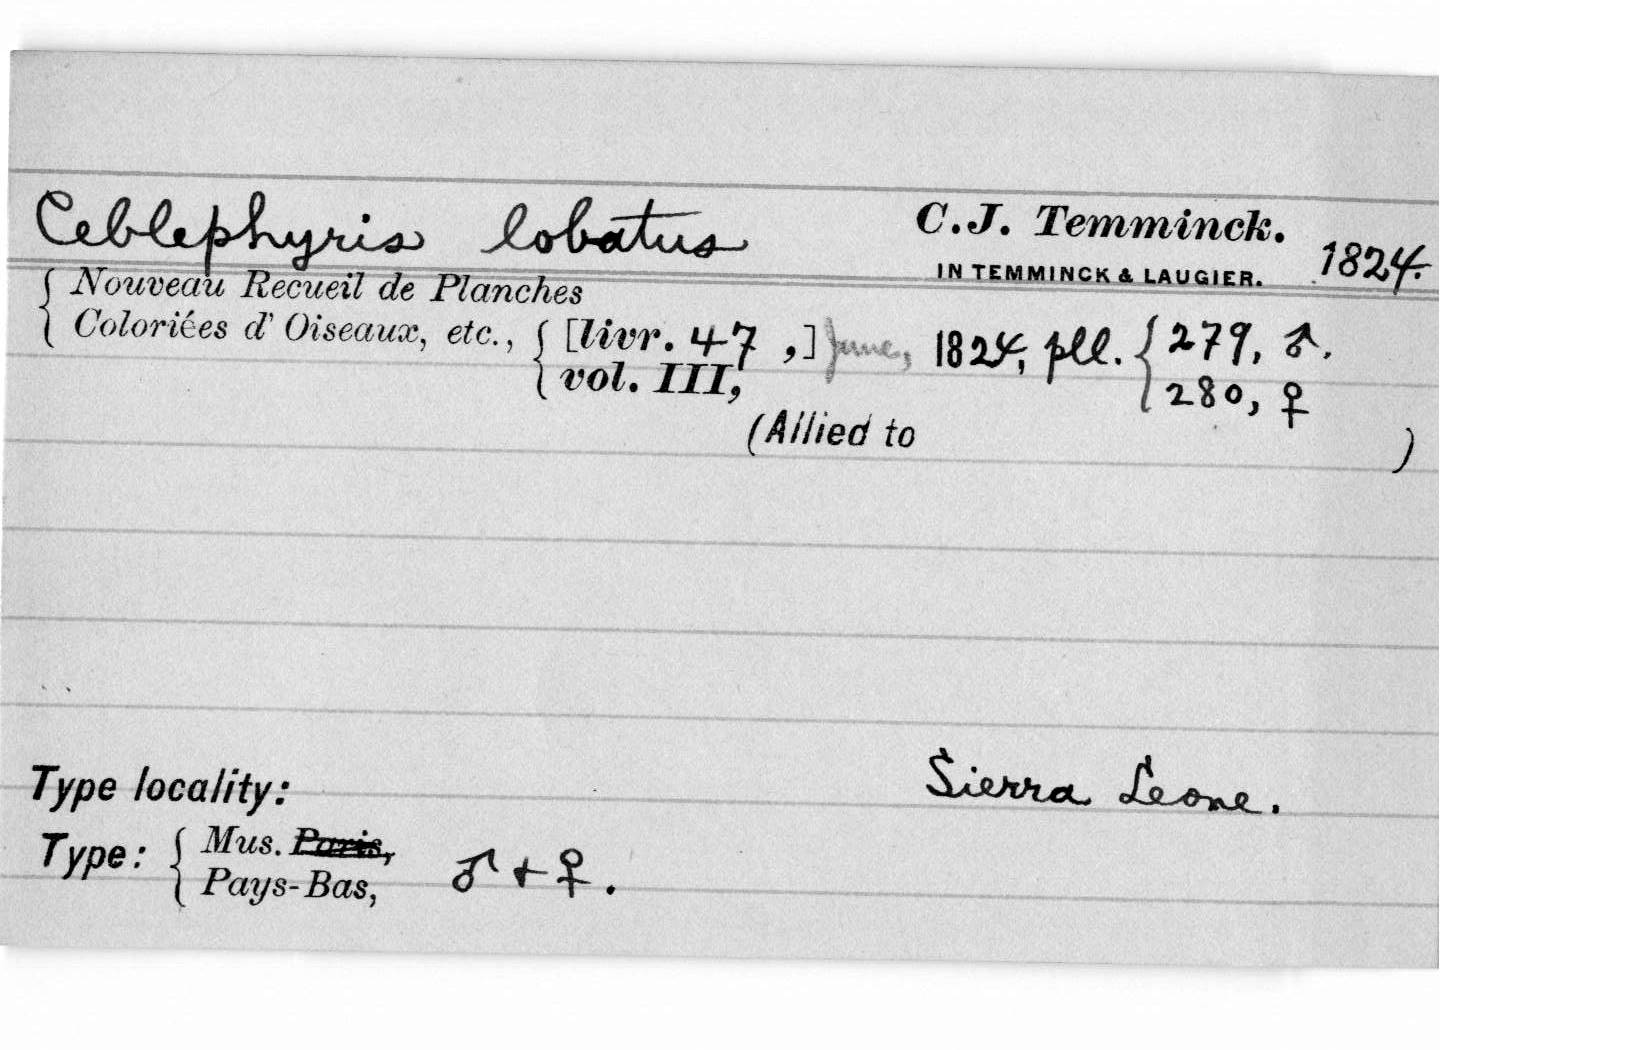 Ceblephyris lobatus C.J. Temminck.
IN TEMMINCK & LAUGIER. 1824.
{ Nouveau Recueil de Planches
Coloriées d' Oiseaux, etc., { [livr. 47 ,] June, 1824, pll. { 279, ♂.
vol. III, 280, ♀
(Allied to )
Type locality: Sierra Leone.
Type: { Mus. Paris,
Pays-Bas, ♂ + ♀.